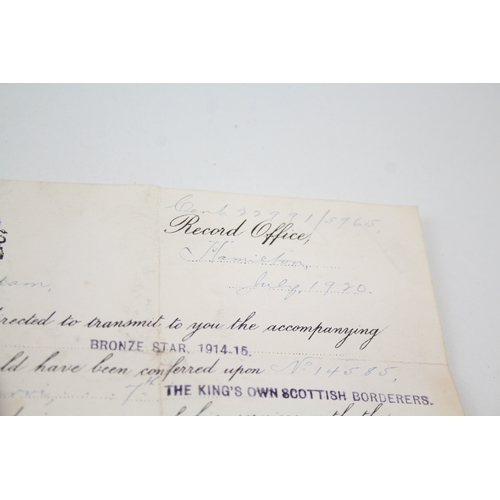 22991/5965.
Record Office,
Hamilton,
July, 1920.
directed to transmit to you the accompanying
BRONZE STAR, 1914-15.
ld have been conferred upon No 14585,
7th THE KING'S OWN SCOTTISH BORDERERS.